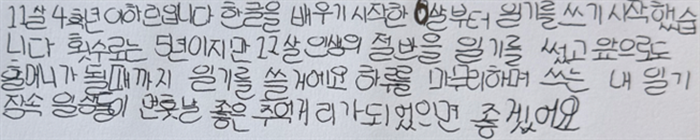 11살 4학년 이하은입니다 한글을 배우기 시작한 6살부터 일기를 쓰기 시작했습
니다 횟수로는 5년이지만 11살 인생의 절반을 일기를 썼고 앞으로도
할머니가 될때까지 일기를 쓸거에요 하루를 마무리하며 쓰는 내 일기
장속 일상들이 먼훗날 좋은 추억거리가 되었으면 좋겠어요